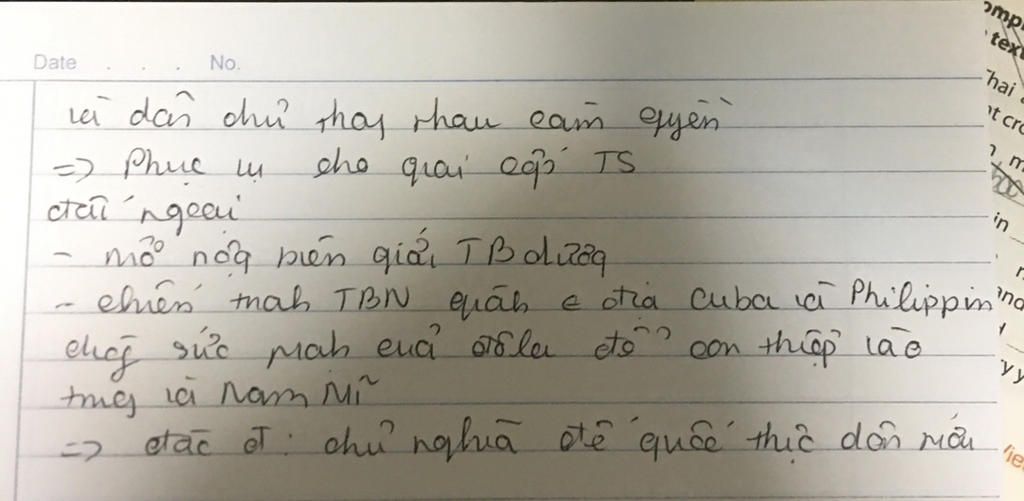 Date . . . No.
và dân chủ thay nhau cầm quyền
=> Phục vụ cho giai cấp TS
đối ngoại
- mở rộg biên giới TB dươg
- chiến tranh TBN quành đ địa Cuba và Philippin
dùg sức mạh của đôla để can thiệp vào
trug và Nam Mĩ
=> đặc đ : chủ nghĩa đế quốc thực dân mới